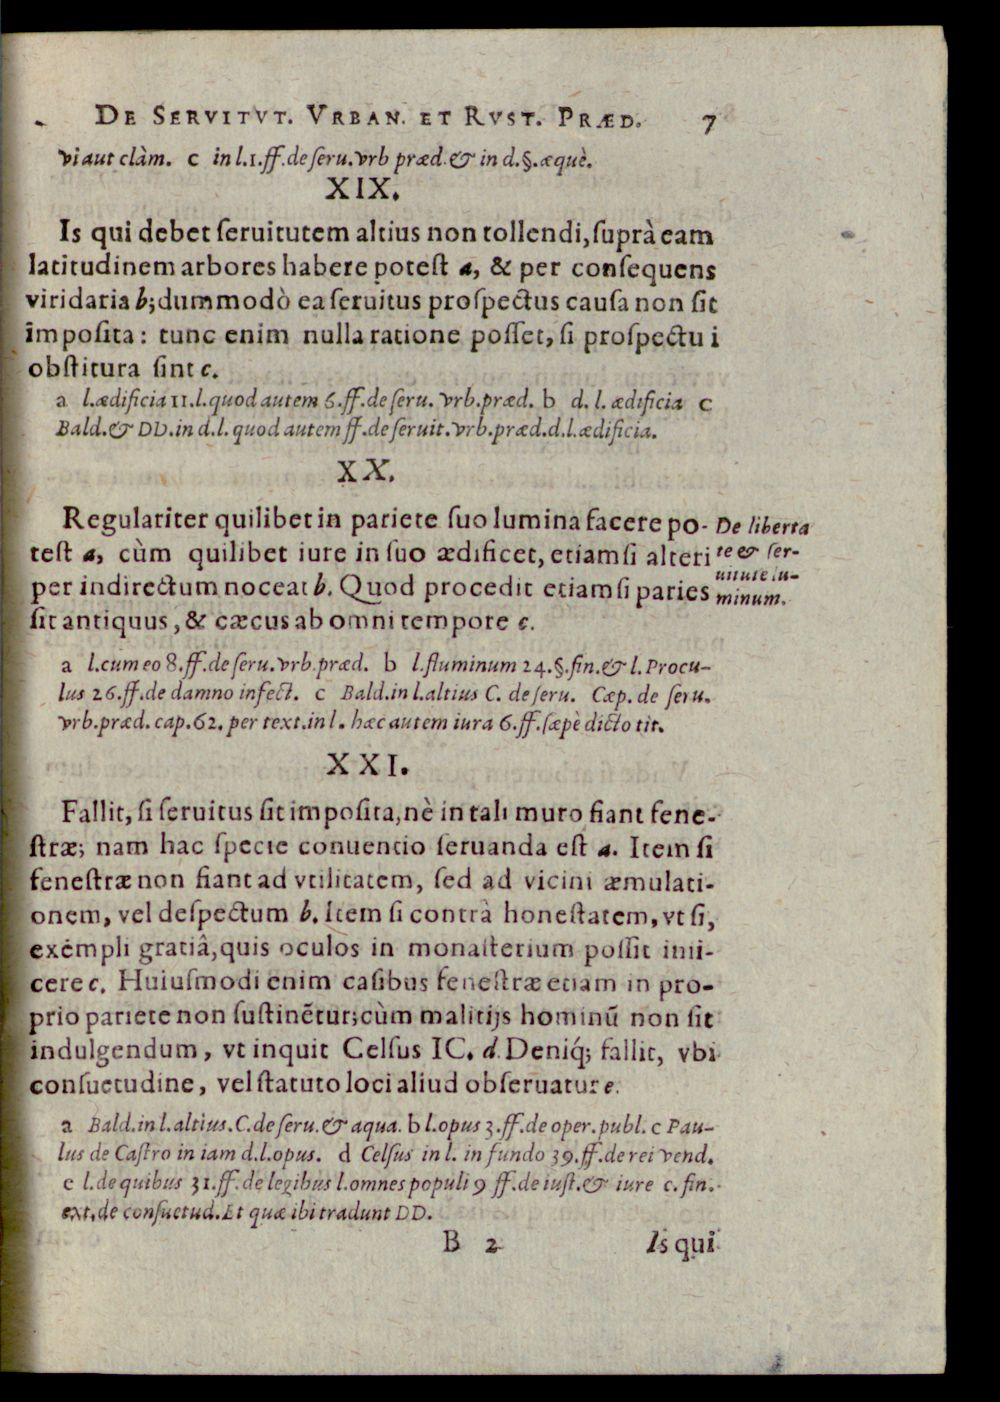 De Servitvt. Vrban. et Rvst. Præd. 7
vi aut clàm. c in l.1.ff.de ſeru.vrb præd.& in d.§.æquè.
XIX.
Is qui debet ſeruitutem altius non tollendi, ſuprà eam
latitudinem arbores habere poteſt a, & per conſequens
viridaria b; dummodò ea ſeruitus proſpectus cauſa non ſit
impoſita: tunc enim nulla ratione poſſet, ſi proſpectui
obſtitura ſint c.
a l.ædificia 11.l.quod autem 6.ff.de ſeru. vrb.præd. b d. l. ædificia c
Bald.& DD.in d.l. quod autem ff.de ſeruit.vrb.præd.d.l.ædificia.
XX.
Regulariter quilibet in pariete ſuo lumina facere po-
teſt a, cùm quilibet iure in ſuo ædificet, etiamſi alteri
per indirectum noceat b. Quod procedit etiamſi paries
ſit antiquus, & cæcus ab omni tempore c.
De liberta
te & ſer-
uitute lu-
minum.
a l.cum eo 8.ff.de ſeru.vrb.præd. b l.fluminum 24.§.fin.& l.Procu-
lus 26.ff.de damno infect. c Bald.in l.altius C. de ſeru. Cæp. de ſeru.
vrb.præd. cap.62. per text.in l. hæc autem iura 6.ff.ſæpè dicto tit.
XXI.
Fallit, ſi ſeruitus ſit impoſita, nè in tali muro fiant fene-
ſtræ; nam hac ſpecie conuentio ſeruanda eſt a. Item ſi
feneſtræ non fiant ad vtilitatem, ſed ad vicini æmulati-
onem, vel deſpectum b. Item ſi contrà honeſtatem, vt ſi,
exempli gratiâ, quis oculos in monaſterium poſſit imi-
cere c. Huiuſmodi enim caſibus feneſtræ etiam in pro-
prio pariete non ſuſtinẽtur; cùm malitijs hominũ non ſit
indulgendum, vt inquit Celſus IC. d. Deniq́; fallit, vbi
conſuetudine, vel ſtatuto loci aliud obſeruatur e.
a Bald.in l.altìus.C.de ſeru.& aqua. b l.opus 3.ff.de oper.publ. c Pau-
lus de Caſtro in iam d.l.opus. d Celſus in l. in fundo 39.ff.de rei vend.
e l.de quibus 31.ff.de legibus l.omnes populi 9 ff.de iuſt.& iure c.fin.
ext.de conſuetud. Et quæ ibi tradunt DD.
B 2 Is qui